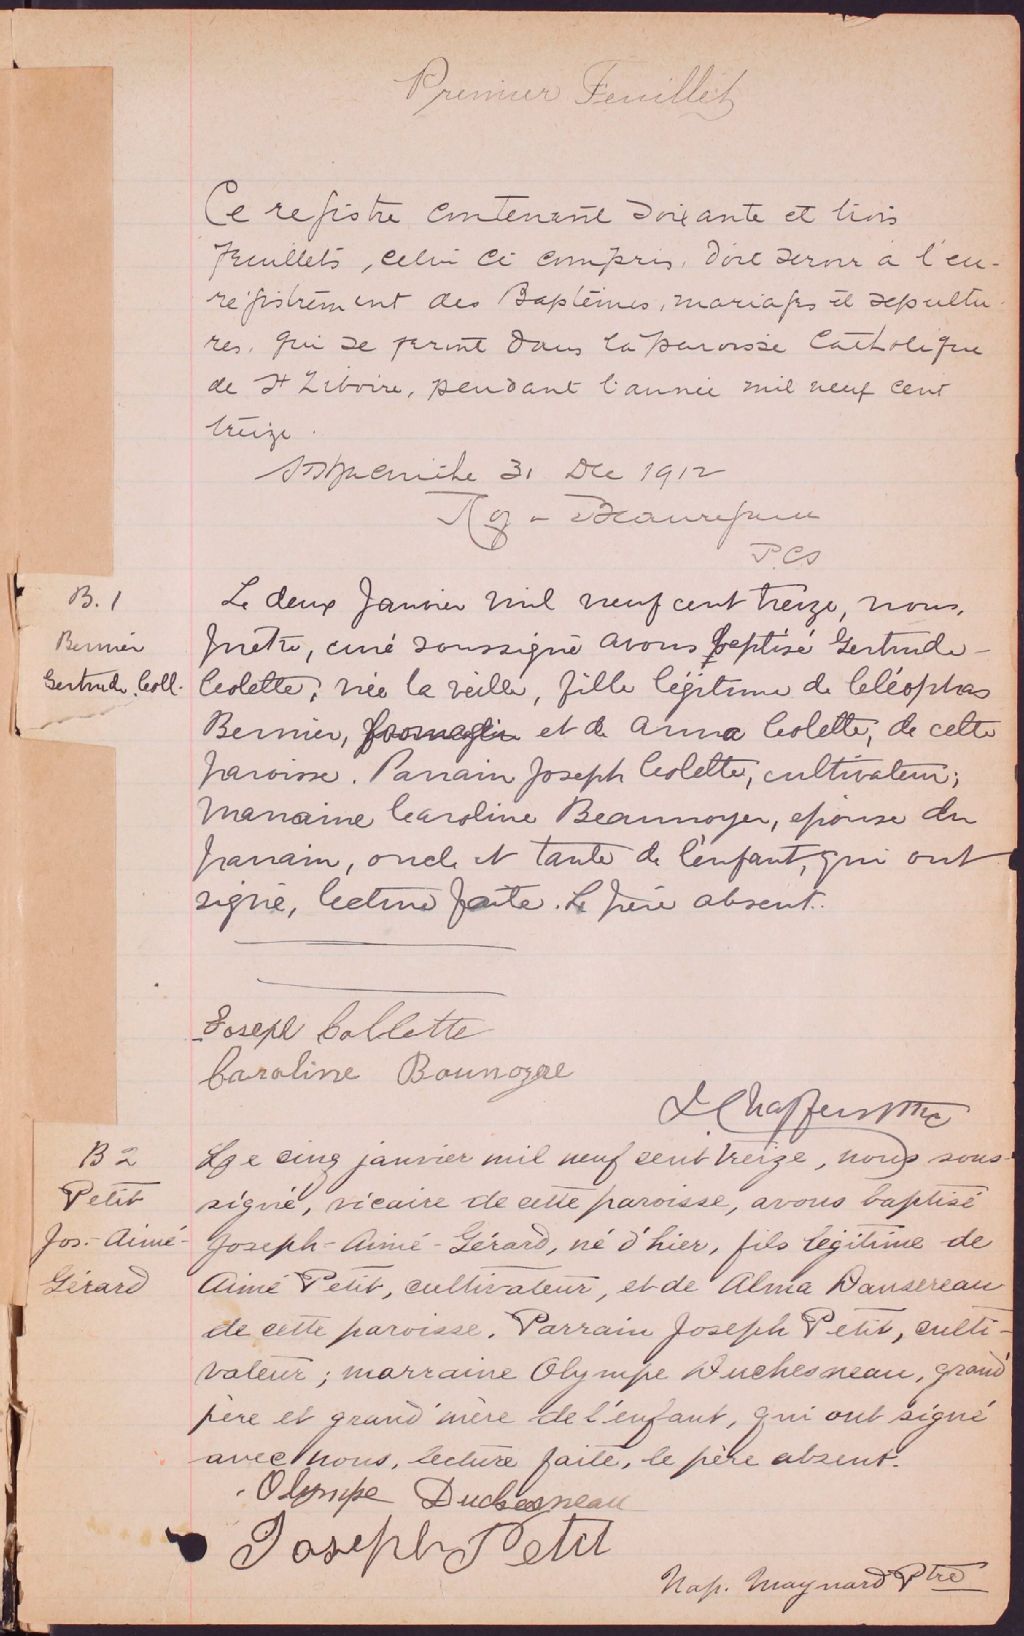 Premier Feuillet
Ce registre contenant soixante et trois
feuillets, celui ci compris, doit servir à l'en-
régistrement des Baptêmes, mariages et sepultu-
res, qui se feront dans la paroisse Catholique
de St Liboire, pendant l'année mil neuf cent
treize.
St Hyacinthe 31 Dec 1912
Roy - Beauregard
P.C.S
B.1
Bernier
Gertrude Coll.
Le deux Janvier mil neuf cent treize, nous,
prêtre, curé soussigné avons baptisé Gertrude-
Colette, née la veille, fille légitime de Cléophas
Bernier, fromagier et de Anna Colette, de cette
paroisse. Parrain Joseph Colette, cultivateur;
Marraine Caroline Beaunoyer, épouse du
parrain, oncle et tante de l'enfant, qui ont
signé, lecture faite. Le père absent.
Joseph Collette
Caroline Bounoyre
B 2
Petit
Jos.-Aimé-
Gérard
Le cinq janvier mil neuf cent treize, nous sous-
signé, vicaire de cette paroisse, avons baptisé
Joseph-Aimé-Gérard, né d'hier, fils légitime de
Aimé Petit, cultivateur, et de Alma Dansereau
de cette paroisse. Parrain Joseph Petit, culti-
vateur; marraine Olympe Duchesneau, grand
père et grand'mère de l'enfant, qui ont signé
avec nous, lecture faite, le père absent.
Olympe Duchesneau
Joseph Petit
Nap. Maynard Ptre